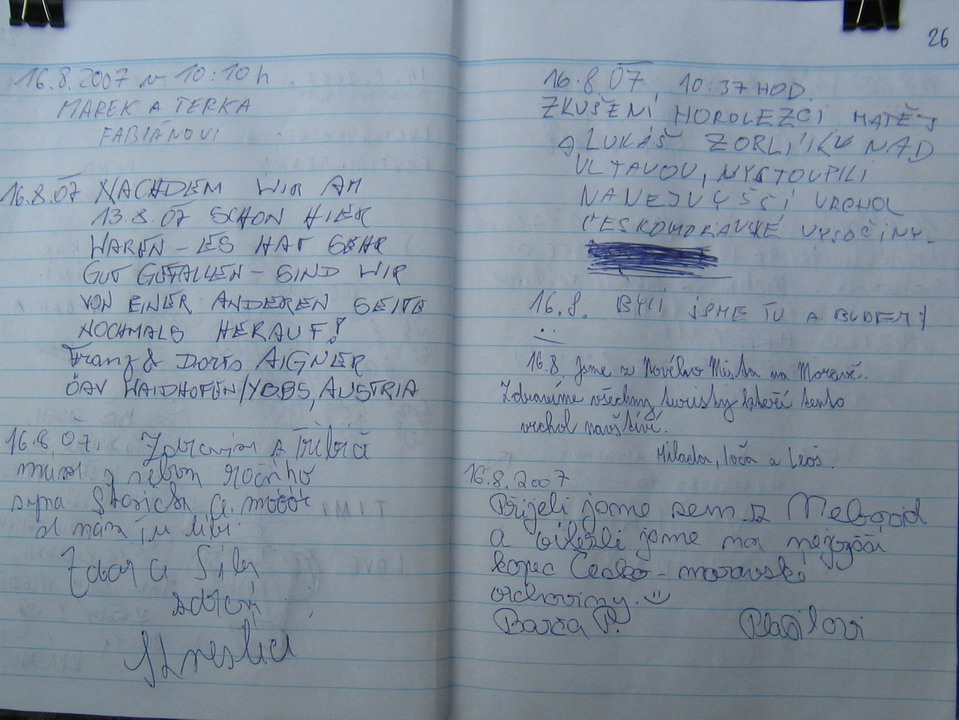 16.8.2007 v 10:10 h
MAREK A TERKA
FABIÁNOVI
16.8.07 NACHDEM WIR AM
13.8.07 SCHON HIER
WAREN - ES HAT SEHR
GUT GEFALLEN - SIND WIR
VON EINER ANDEREN SEITE
NOCHMALS HERAUF!
Franz & Doris AIGNER
ÖAV WAIDHOFEN/YBBS, AUSTRIA
16.8.07. Zdravím z Třebíče
syna
Zdar a Sílu
26
16.8.07, 10:37 HOD.
ZKUŠENÍ HOROLEZCI MATĚJ
A LUKÁŠ Z ORLÍKU NAD
VLTAVOU, VYSTOUPILI
NA NEJVYŠŠÍ VRCHOL
ČESKOMORAVSKÉ VYSOČINY.
16.8. BYLI JSME TU A BUDEM!
16.8. Jsme z Nového Města na Moravě.
Zdravíme všechny turisty kteří tento
vrchol navštíví.
Milada, Ivča a Leoš.
16.8.2007
Přijeli jsme sem z
a vilezli jsme na nejvyšší
kopec Česko-moravské
vrchoviny.
Barča P. Plašilovi